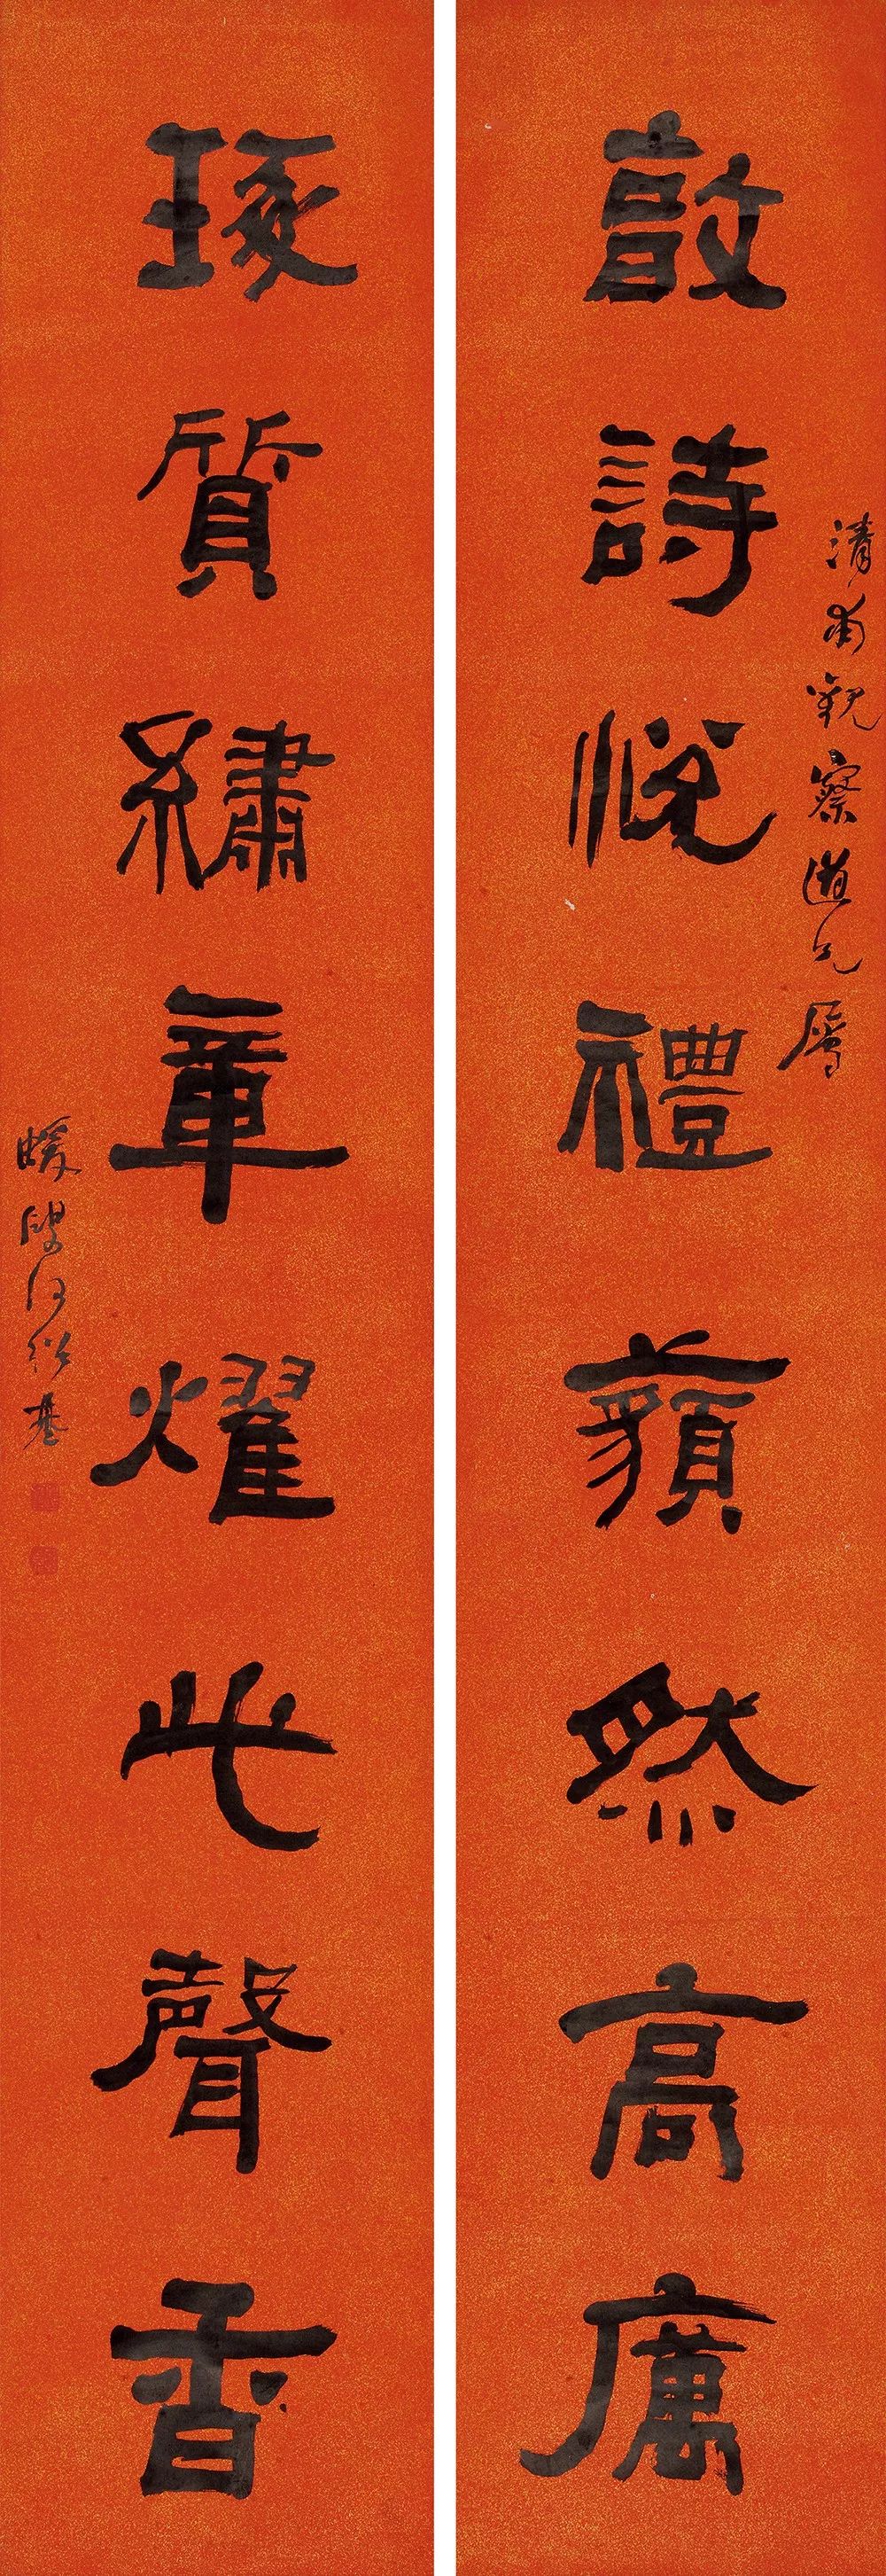 敦詩悅禮藐然高厲
清甫觀察道兄屬
琢質繡章燿此聲香
蝯叟何紹基